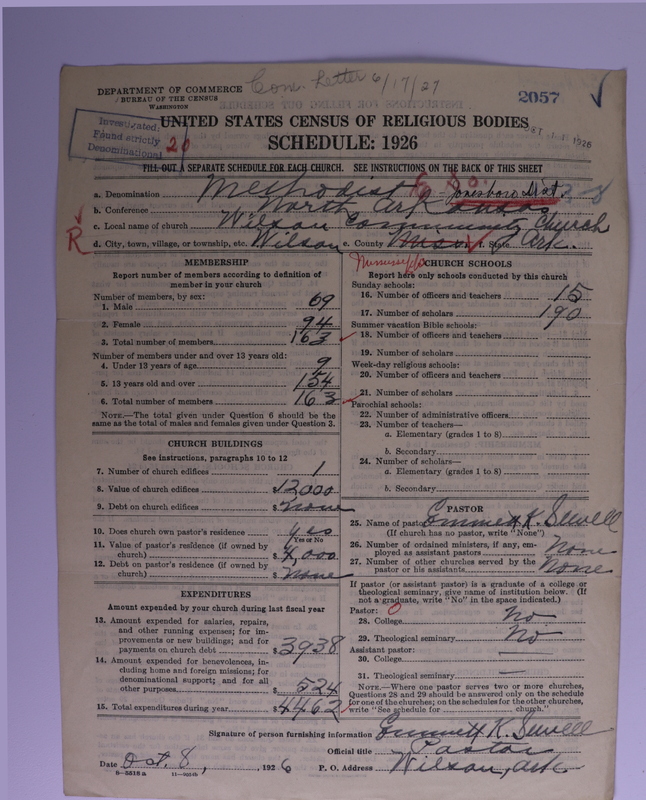 Com. Letter 6/17/27
DEPARTMENT OF COMMERCE
BUREAU OF THE CENSUS
WASHINGTON
2057
UNITED STATES CENSUS OF RELIGIOUS BODIES
SCHEDULE: 1926
Investigated:
Found strictly
Denominational
20
OCT 1926
FILL OUT A SEPARATE SCHEDULE FOR EACH CHURCH. SEE INSTRUCTIONS ON THE BACK OF THIS SHEET
a. Denomination Methodist E. So. - Jonesboro Dist.
b. Conference North Arkansas
c. Local name of church Wilson Community Church
R
d. City, town, village, or township, etc. Wilson e. County Miss f. State Ark.
Mississippi
MEMBERSHIP
Report number of members according to definition of
member in your church
Number of members, by sex:
1. Male 69
2. Female 94
3. Total number of members 163
Number of members under and over 13 years old:
4. Under 13 years of age 9
5. 13 years old and over 154
6. Total number of members 163
NOTE.—The total given under Question 6 should be the
same as the total of males and females given under Question 3.
CHURCH BUILDINGS
See instructions, paragraphs 10 to 12
7. Number of church edifices 1
8. Value of church edifices $12000
9. Debt on church edifices $None
10. Does church own pastor's residence yes
Yes or No
11. Value of pastor's residence (if owned by
church) $4,000
12. Debt on pastor's residence (if owned by
church) $None
EXPENDITURES
Amount expended by your church during last fiscal year
13. Amount expended for salaries, repairs,
and other running expenses; for im-
provements or new buildings; and for
payments on church debt $3938
14. Amount expended for benevolences, in-
cluding home and foreign missions; for
denominational support; and for all
other purposes $524
15. Total expenditures during year $4462
CHURCH SCHOOLS
Report here only schools conducted by this church
Sunday schools:
16. Number of officers and teachers 15
17. Number of scholars 190
Summer vacation Bible schools:
18. Number of officers and teachers
19. Number of scholars
Week-day religious schools:
20. Number of officers and teachers
21. Number of scholars
Parochial schools:
22. Number of administrative officers
23. Number of teachers—
a. Elementary (grades 1 to 8)
b. Secondary
24. Number of scholars—
a. Elementary (grades 1 to 8)
b. Secondary
PASTOR
25. Name of pastor Emmett K. Sewell
(If church has no pastor, write "None")
26. Number of ordained ministers, if any, em-
ployed as assistant pastors None
27. Number of other churches served by the
pastor or his assistants None
If pastor (or assistant pastor) is a graduate of a college or
theological seminary, give name of institution below. (If
not a graduate, write "No" in the space indicated.)
Pastor:
28. College No
29. Theological seminary No
Assistant pastor:
30. College —
31. Theological seminary —
NOTE.—Where one pastor serves two or more churches,
Questions 28 and 29 should be answered only on the schedule
for one of the churches; on the schedules for the other churches,
write "See schedule for church."
Signature of person furnishing information Emmett K. Sewell
Official title Pastor
Date Oct. 8, 1926 P. O. Address Wilson, Ark.
8-5518a 11-9054b